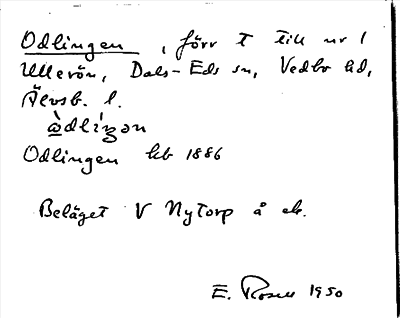 Odlingen, förr t till nr 1
Ullerön, Dals-Eds sn, Vedbo hd,
Älvsb. l.
òdlíŋən
Odlingen hb 1886
Beläget V Nytorp å ek.
E. Rosell 1950